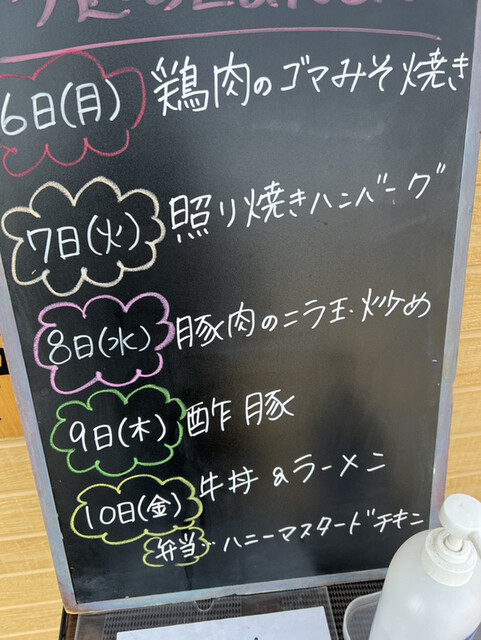 6日(月) 鶏肉のゴマみそ焼き
7日(火) 照り焼きハンバーグ
8日(水) 豚肉のニラ玉炒め
9日(木) 酢豚
10日(金) 牛丼&ラーメン
弁当… ハニーマスタードチキン